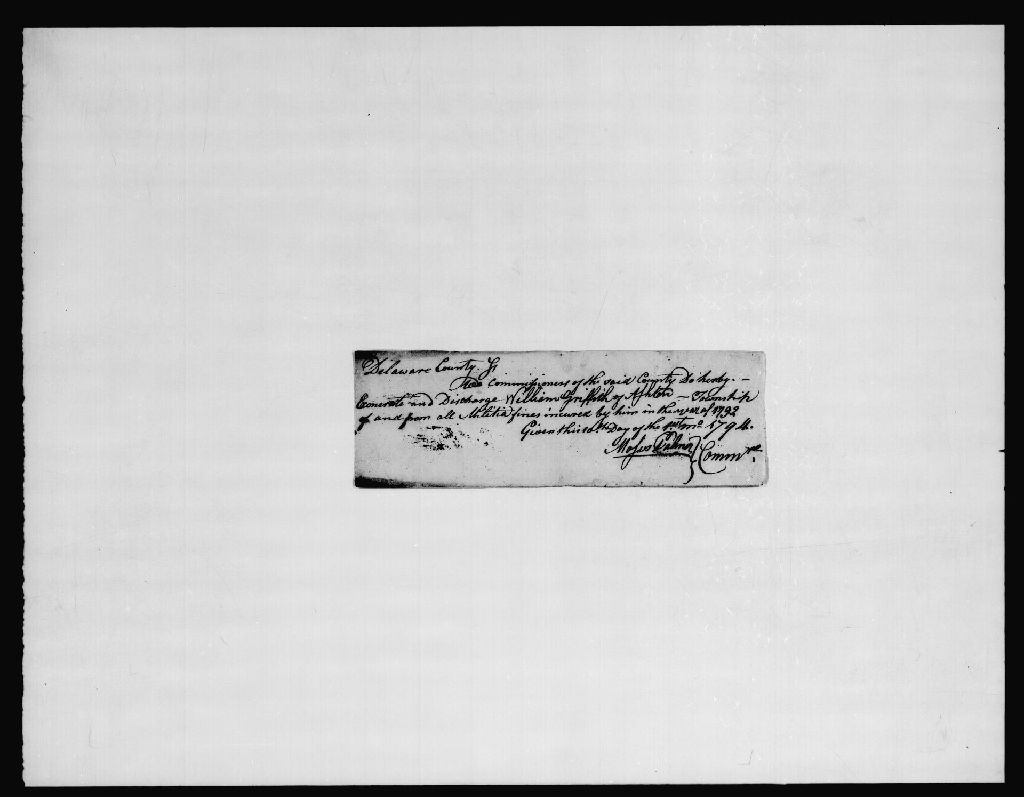 Delaware County Ss
The Commissioners of the said County Do hereby. —
Exonerate and Discharge William Griffith of Ashton — Township
of and from all Militia fines incured by him in the year of 1793
Given this 10th Day of the mo. 1794.
Moses Palmer } Commrs.